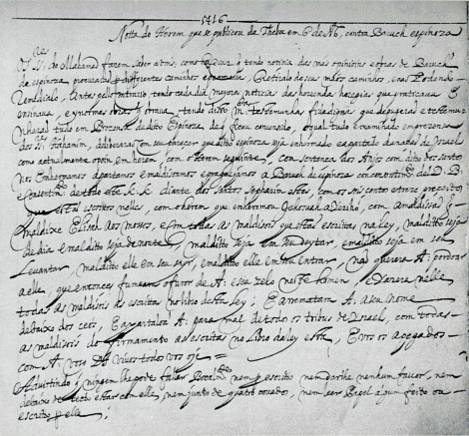 1416
Notta do Herem que se publicou da Theba em 6 de Ab, contra Baruch espinoza
Os SSres do Mahamad fazem saber a V Ms, como a dias q tendo noticia das mas opinioins e obras de Baruch
de espinoza procuraraõ p differentes caminhos e promessas Retiralo de seus maos caminhos, e naõ Podendo
Remedialo, Antes pello contrario, tendo cada dia mayores noticias das horrendas heregias que praticava E
ensinava, e ynormes obras q obrava, tendo disto m.tas testemunhas fidedignas que depuzeraõ e testemu
nharaõ tudo em Prezensa de ditto Espinoza, de q ficou convensido, o qual tudo examinado em prezensa
dos SSres Hahamim, deliberaraõ com seu parecer que ditto Espinoza seja enhermado e apartado da naçaõ de Israel
como actualmente o poin em herem, com o Herem seguinte; Com sentença dos Anjos com ditto dos santos
Nos Enhermamos apartamos emaldisoamos e praguejamos a Baruch de espinoza com consentim.to del D. B.
E consentim.to de todo este K. K. diante dos santos sepharim estes, com os seis centos e treze preceitos
que estaõ escrittos nelles, com o herem que enheremou Jehosuah a Jerichó, com A maldissaõ q
maldixe Elisah aos mossos, e com todas as maldisois que estaõ escrittas na ley, malditto seja
de dia e malditto seja de noute, malditto seja em seu deytar, e malditto seja em seu
Levantar, malditto elle em seu sayr, e malditto elle em seu entrar, naõ quererá A. perdoar
a elle, que entonces fumeará o furor de A. e seu zelo neste homem, E yazerá nelle
todas as maldisois as escrittas no libro desta ley; E arrematará A. a seu nome
debaixo dos ceos, E apartaloá A. para mal de todos os tribus de Ysrael, com todas
as maldisois do firmamento as escritas no Libro da ley esta, E vos os apegados
com A. vosso D. vivos todos vos oje
Advirtindo q ningem lhe pode falar bocalm.te nem p escritto nem darlhe nenhum favor, nem
debaixo de tecto estar com elle, nem junto de quatro covados, nem leer Papel algum feito ou
escritto p elle;